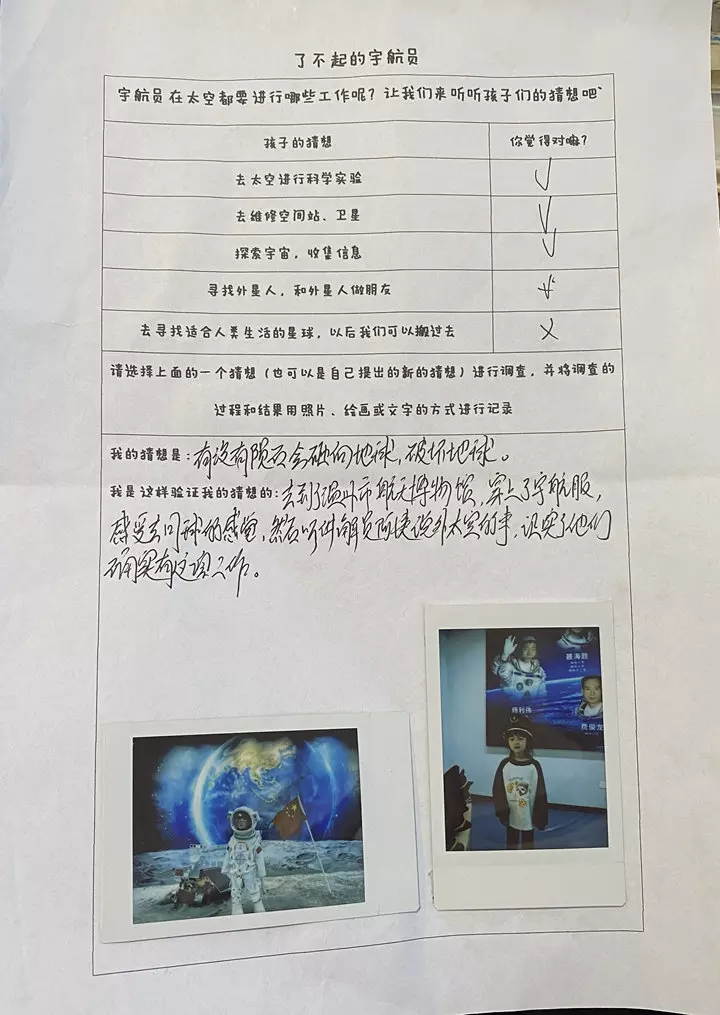 了不起的宇航员
宇航员在太空都要进行哪些工作呢？让我们来听听孩子们的猜想吧~
孩子的猜想 你觉得对嘛？
去太空进行科学实验 ✓
去维修空间站、卫星 ✓
探索宇宙，收集信息 ✓
寻找外星人，和外星人做朋友
去寻找适合人类生活的星球，以后我们可以搬过去 ×
请选择上面的一个猜想（也可以是自己提出的新的猜想）进行调查，并将调查的
过程和结果用照片、绘画或文字的方式进行记录
我的猜想是：有没有陨石会砸向地球，破坏地球。
我是这样验证我的猜想的：去到了温州市航天博物馆，穿上了宇航服，
感受月球的感觉，然后听讲解员阿姨说外太空的事，证实了他们
确实有这项工作。
聂海胜
费俊龙